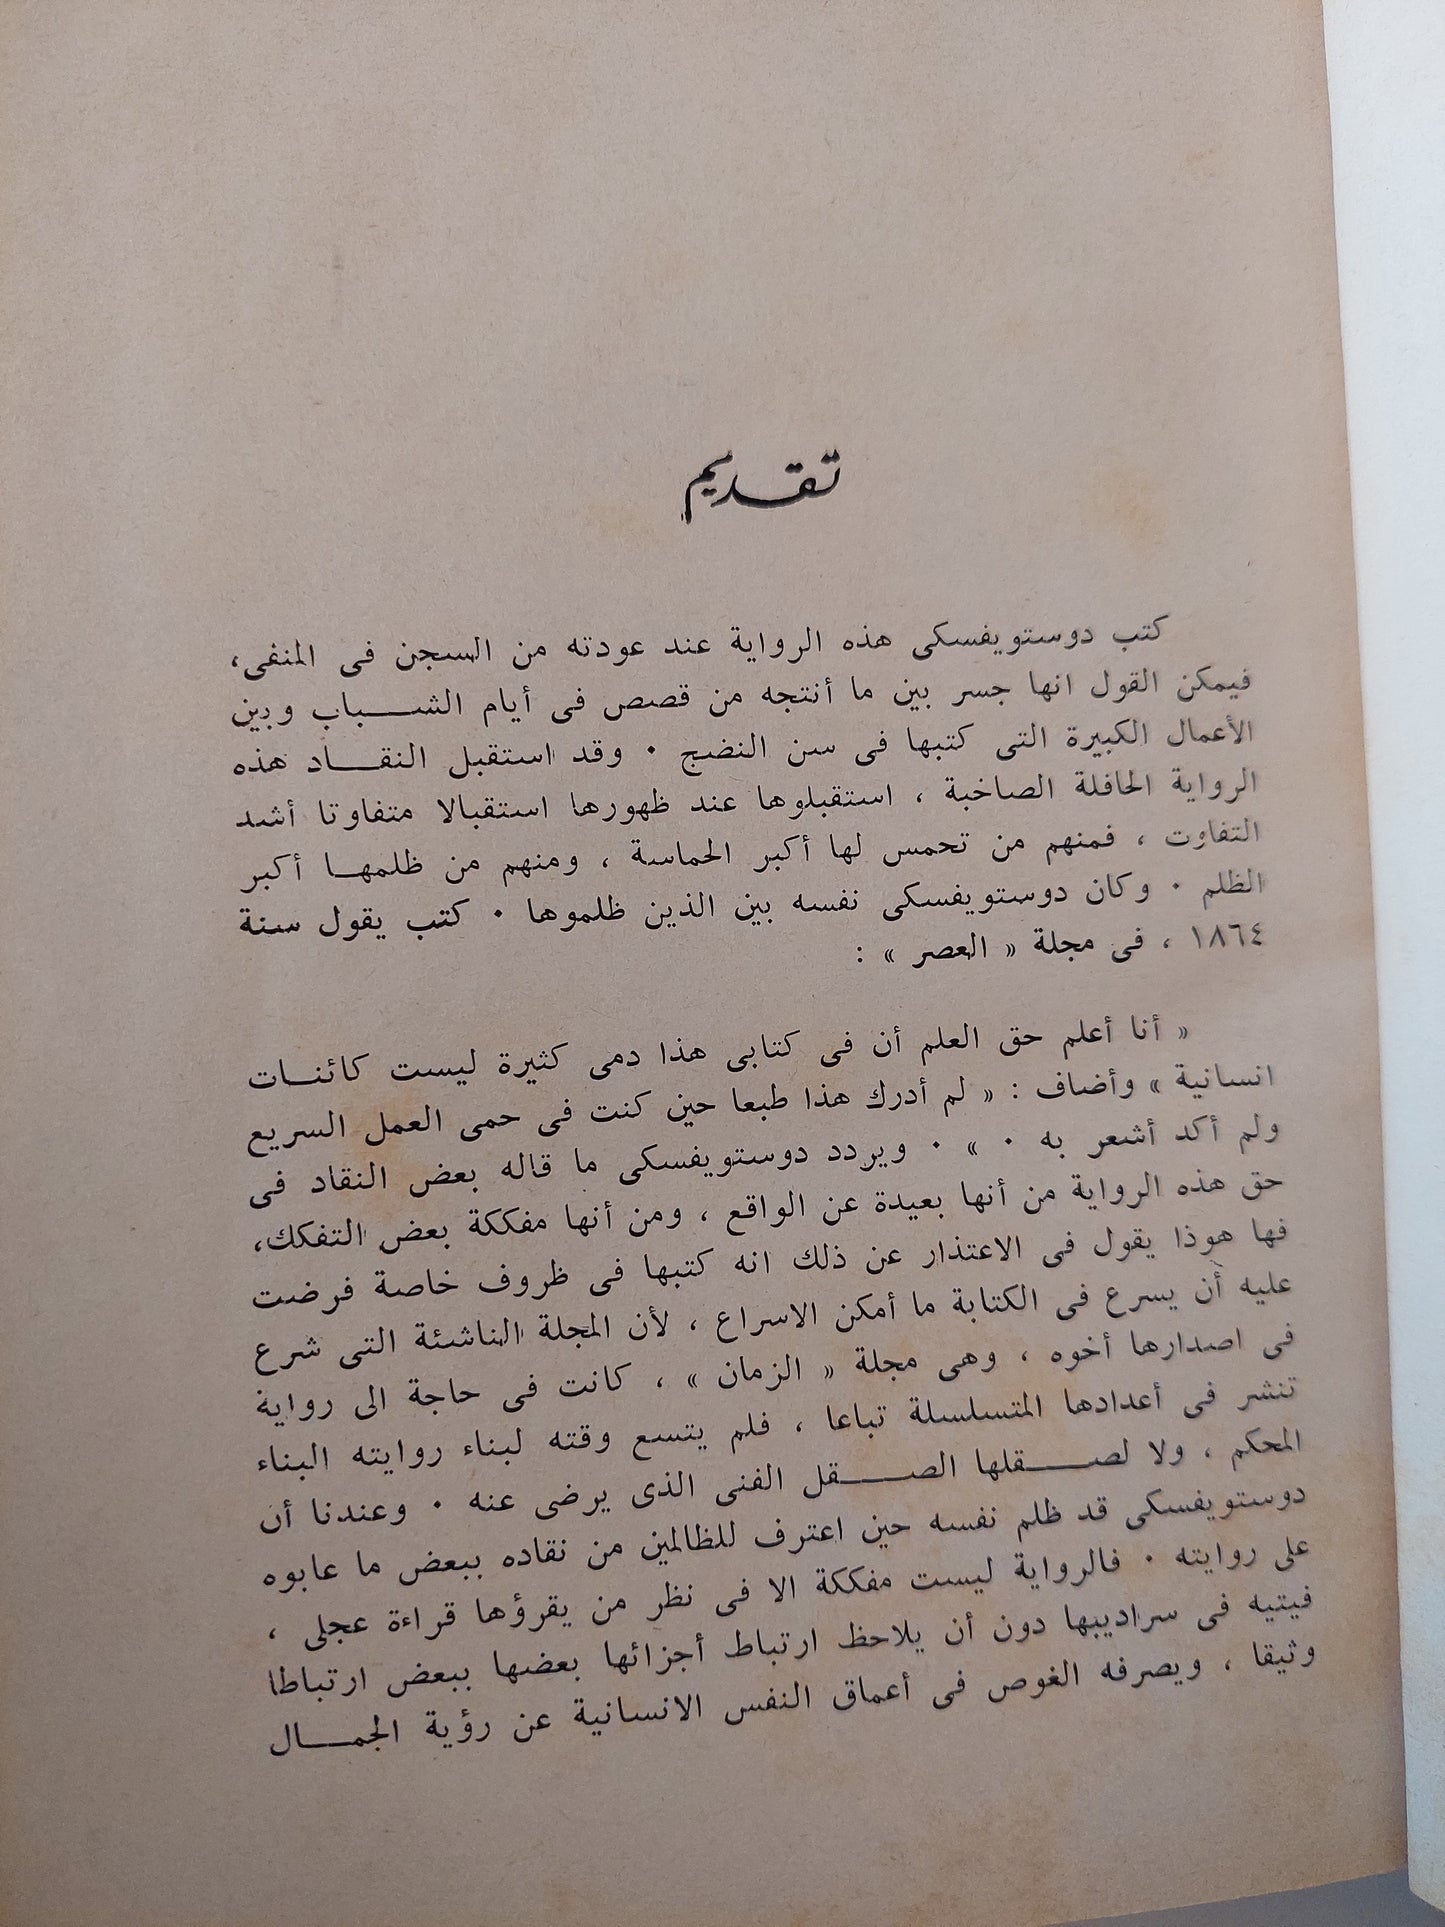 تقديم
كتب دوستويفسكى هذه الرواية عند عودته من السجن فى المنفى،
فيمكن القول انها جسر بين ما أنتجه من قصص فى أيام الشباب وبين
الأعمال الكبيرة التى كتبها فى سن النضج . وقد استقبل النقاد هذه
الرواية الحافلة الصاخبة ، استقبلوها عند ظهورها استقبالا متفاوتا أشد
التفاوت ، فمنهم من تحمس لها أكبر الحماسة ، ومنهم من ظلمها أكبر
الظلم . وكان دوستويفسكى نفسه بين الذين ظلموها . كتب يقول سنة
١٨٦٤ ، فى مجلة « العصر » :
« أنا أعلم حق العلم أن فى كتابى هذا دمى كثيرة ليست كائنات
انسانية » وأضاف : « لم أدرك هذا طبعا حين كنت فى حمى العمل السريع
ولم أكد أشعر به . » . ويردد دوستويفسكى ما قاله بعض النقاد فى
حق هذه الرواية من أنها بعيدة عن الواقع ، ومن أنها مفككة بعض التفكك،
فها هوذا يقول فى الاعتذار عن ذلك انه كتبها فى ظروف خاصة فرضت
عليه أن يسرع فى الكتابة ما أمكن الاسراع ، لأن المجلة الناشئة التى شرع
فى اصدارها أخوه ، وهى مجلة « الزمان » ، كانت فى حاجة الى رواية
تنشر فى أعدادها المتسلسلة تباعا ، فلم يتسع وقته لبناء روايته البناء
المحكم ، ولا لصقلها الصقل الفنى الذى يرضى عنه . وعندنا أن
دوستويفسكى قد ظلم نفسه حين اعترف للظالمين من نقاده ببعض ما عابوه
على روايته . فالرواية ليست مفككة الا فى نظر من يقرؤها قراءة عجلى ،
فيتيه فى سراديبها دون أن يلاحظ ارتباط أجزائها بعضها ببعض ارتباطا
وثيقا ، ويصرفه الغوص فى أعماق النفس الانسانية عن رؤية الجمال